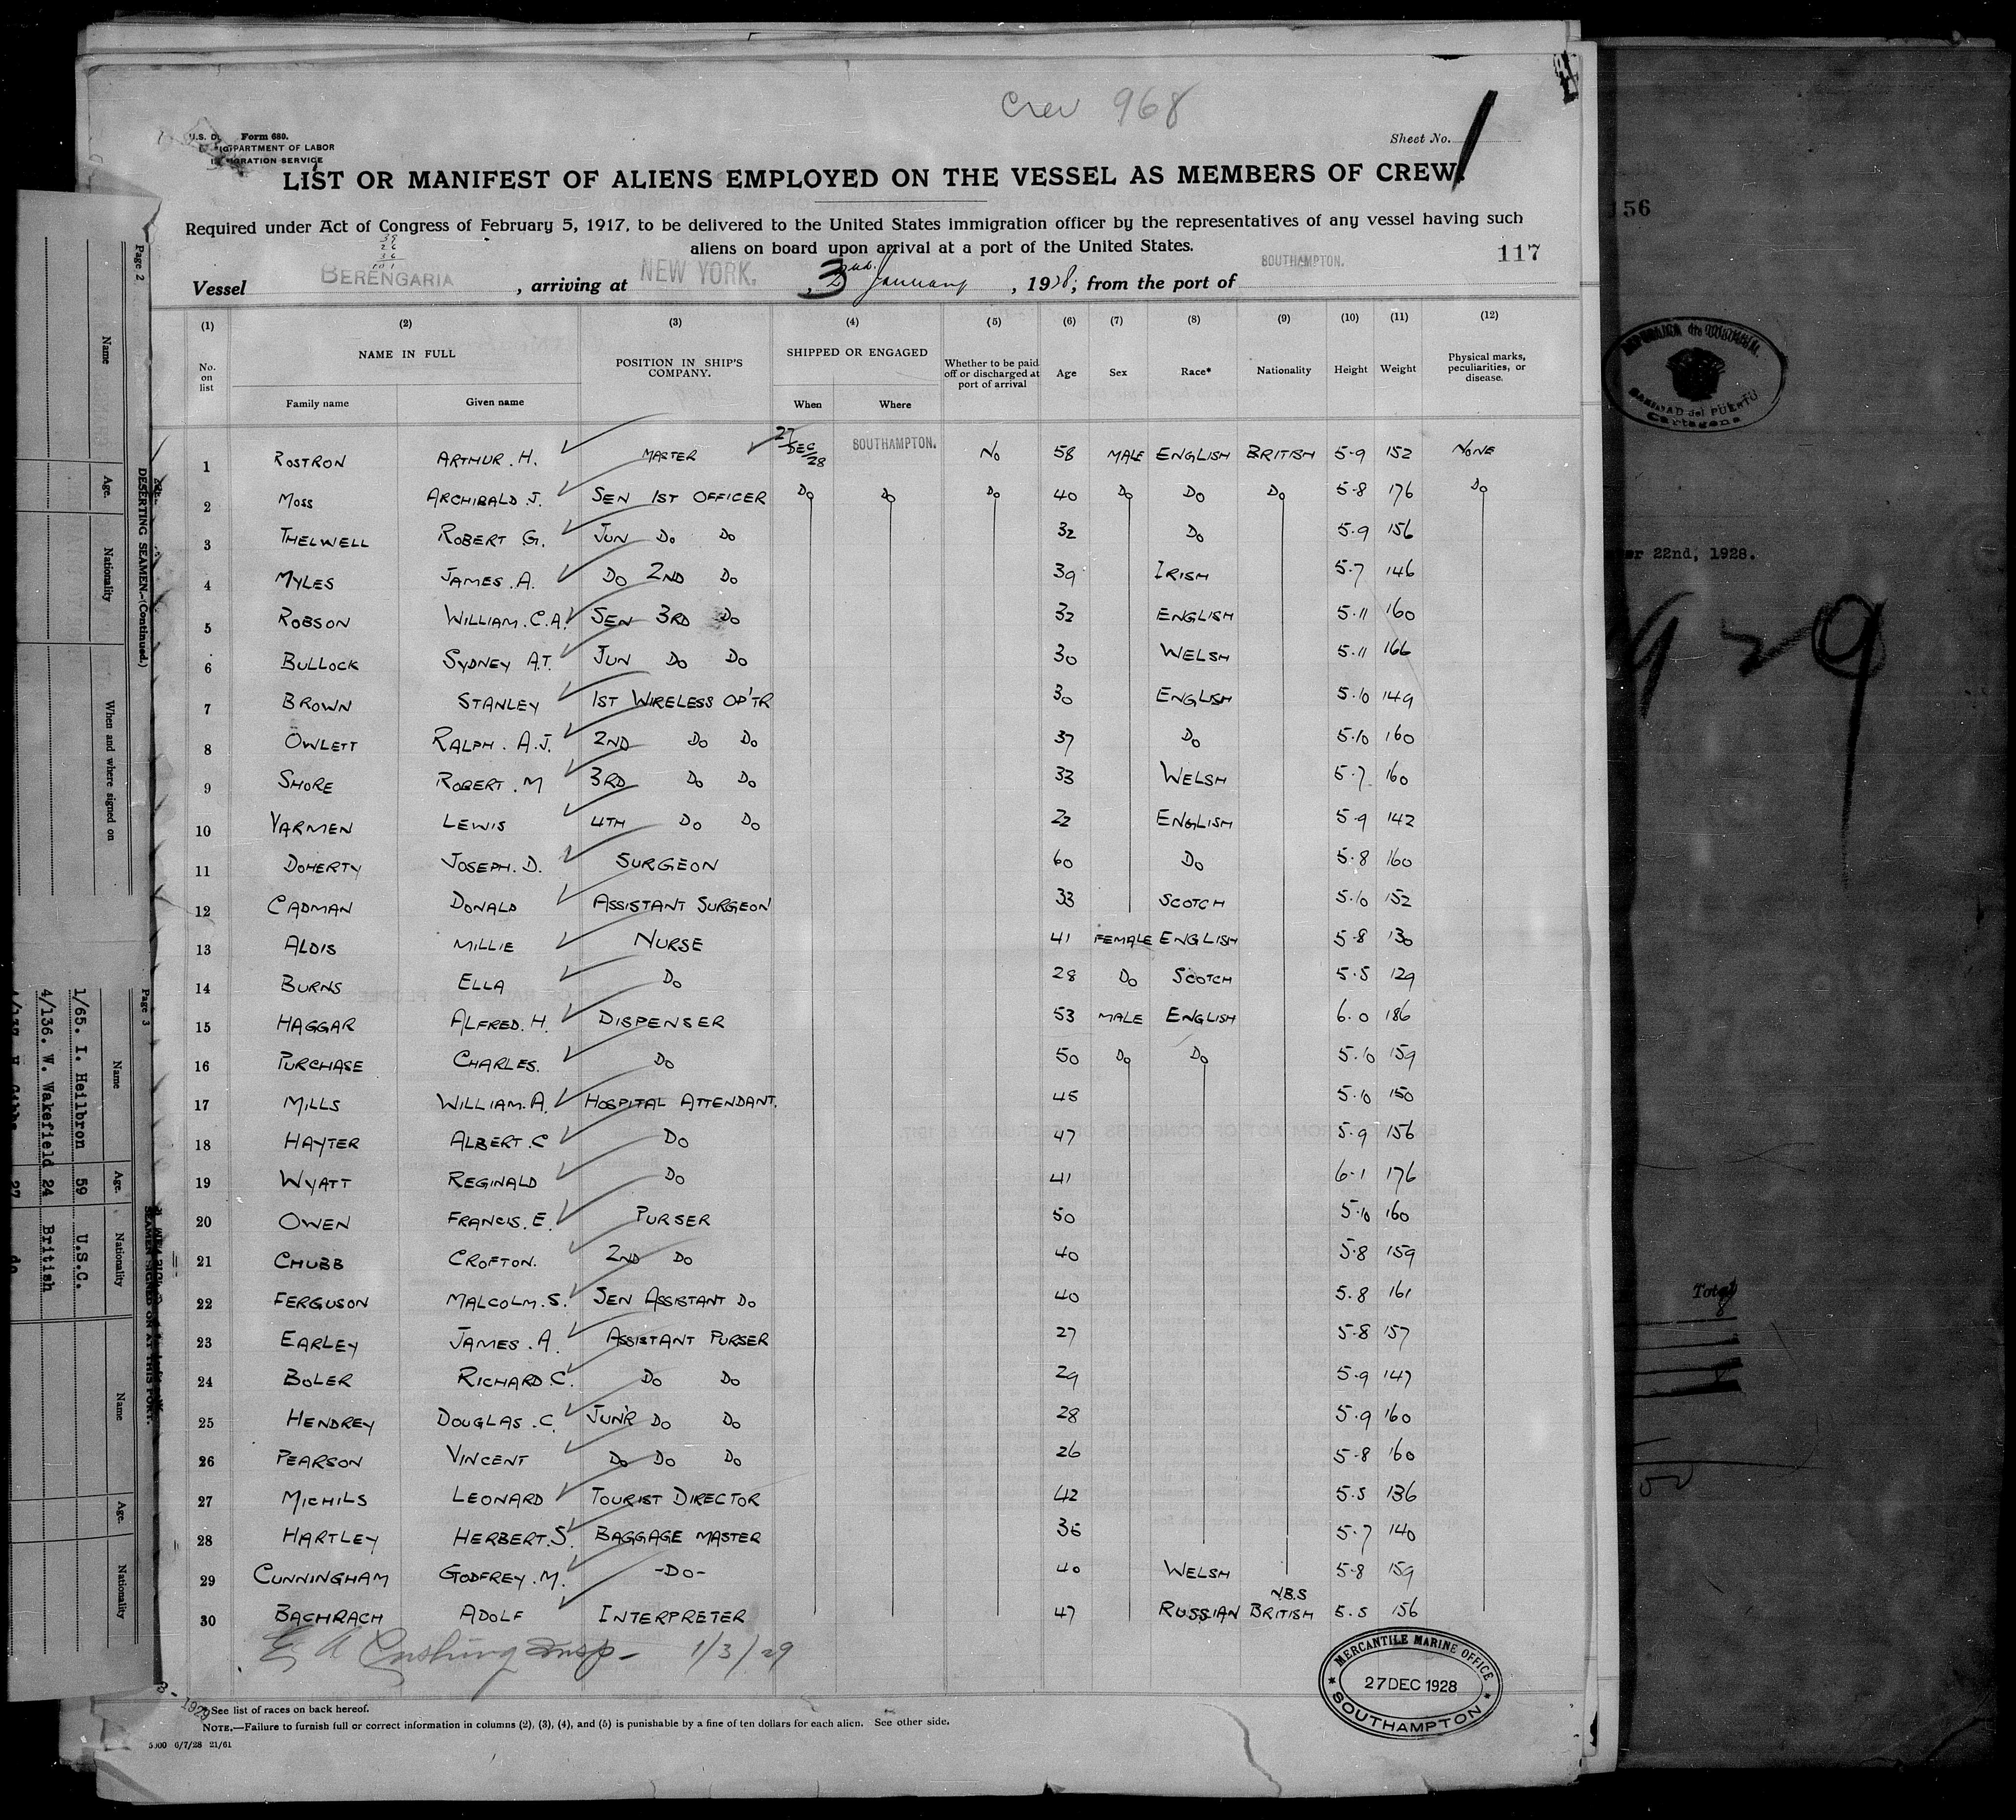 Crew 968
Form 680.
DEPARTMENT OF LABOR
IMMIGRATION SERVICE
Sheet No. 1
LIST OR MANIFEST OF ALIENS EMPLOYED ON THE VESSEL AS MEMBERS OF CREW.
Required under Act of Congress of February 5, 1917, to be delivered to the United States immigration officer by the representatives of any vessel having such
aliens on board upon arrival at a port of the United States.
117
Vessel BERENGARIA, arriving at NEW YORK., 3 January, 1928; from the port of SOUTHAMPTON.
(1) (2) (3) (4) (5) (6) (7) (8) (9) (10) (11) (12)
No. on list NAME IN FULL POSITION IN SHIP'S COMPANY. SHIPPED OR ENGAGED Whether to be paid off or discharged at port of arrival Age Sex Race* Nationality Height Weight Physical marks, peculiarities, or disease.
Family name Given name When Where
1 ROSTRON ARTHUR. H. MASTER 27 DEC/28 SOUTHAMPTON. No 58 MALE ENGLISH BRITISH 5-9 152 NONE
2 MOSS ARCHIBALD. J. SEN 1ST OFFICER Do Do Do 40 Do Do Do 5-8 176 Do
3 THELWELL ROBERT G. JUN Do Do 32 Do 5-9 156
4 MYLES JAMES. A. Do 2ND Do 39 IRISH 5-7 146
5 ROBSON WILLIAM. C.A. SEN 3RD Do 32 ENGLISH 5-11 160
6 BULLOCK SYDNEY A.T. JUN Do Do 30 WELSH 5-11 166
7 BROWN STANLEY 1ST WIRELESS OP'TR 30 ENGLISH 5-10 149
8 OWLETT RALPH. A.J. 2ND Do Do 37 Do 5-10 160
9 SHORE ROBERT. M 3RD Do Do 33 WELSH 5-7 160
10 YARMEN LEWIS 4TH Do Do 22 ENGLISH 5-9 142
11 DOHERTY JOSEPH. D. SURGEON 60 Do 5-8 160
12 CADMAN DONALD ASSISTANT SURGEON 33 SCOTCH 5-10 152
13 ALDIS MILLIE NURSE 41 FEMALE ENGLISH 5-8 130
14 BURNS ELLA Do 28 Do SCOTCH 5-5 129
15 HAGGAR ALFRED. H. DISPENSER 53 MALE ENGLISH 6-0 186
16 PURCHASE CHARLES. Do 50 Do Do 5-10 159
17 MILLS WILLIAM. A. HOSPITAL ATTENDANT. 45 5-10 150
18 HAYTER ALBERT. C Do 47 5-9 156
19 WYATT REGINALD Do 41 6-1 176
20 OWEN FRANCIS. E. PURSER 50 5-10 160
21 CHUBB CROFTON. 2ND Do 40 5-8 159
22 FERGUSON MALCOLM. S. SEN ASSISTANT Do 40 5-8 161
23 EARLEY JAMES. A. ASSISTANT PURSER 27 5-8 157
24 BOLER RICHARD C. Do Do 29 5-9 147
25 HENDREY DOUGLAS. C. JUN'R Do Do 28 5-9 160
26 PEARSON VINCENT Do Do Do 26 5-8 160
27 MICHILS LEONARD TOURIST DIRECTOR 42 5-5 136
28 HARTLEY HERBERT. S. BAGGAGE MASTER 36 5-7 140
29 CUNNINGHAM GODFREY. M. -DO- 40 WELSH 5-8 159
N.B.S
30 BACHRACH ADOLF INTERPRETER 47 RUSSIAN BRITISH 5-5 156
E A Cushing Insp- 1/3/29
MERCANTILE MARINE OFFICE
27 DEC 1928
SOUTHAMPTON
*See list of races on back hereof.
NOTE.—Failure to furnish full or correct information in columns (2), (3), (4), and (5) is punishable by a fine of ten dollars for each alien. See other side.
6/7/28 21/61
Page 2
DESERTING SEAMEN.—(Continued.)
Name Age. Nationality When and where signed on
Page 3
SEAMEN SIGNED ON AT THIS PORT.
Name Age. Nationality Name Age. Nationality
1/65. I. Heilbron 59 U.S.C.
4/136. W. Wakefield 24 British
156
22nd, 1928.
929
SANIDAD del PUERTO
Cartagena
Total